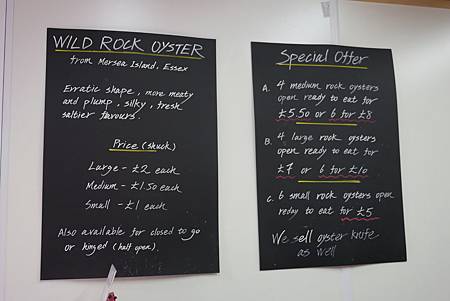 WILD ROCK OYSTER
from Mersea Island, Essex
Erratic shape, more meaty
and plump, silky, fresh
saltier favours.
Price (shuck)
Large - £2 each
Medium - £1.50 each
Small - £1 each
Also available for closed to go
or hinged (half open).
Special Offer
A. 4 medium rock oysters
open ready to eat for
£5.50 or 6 for £8
B. 4 large rock oysters
open ready to eat for
£7 or 6 for £10
C. 6 small rock oysters open
reday to eat for £5
We sell oyster knife
as well